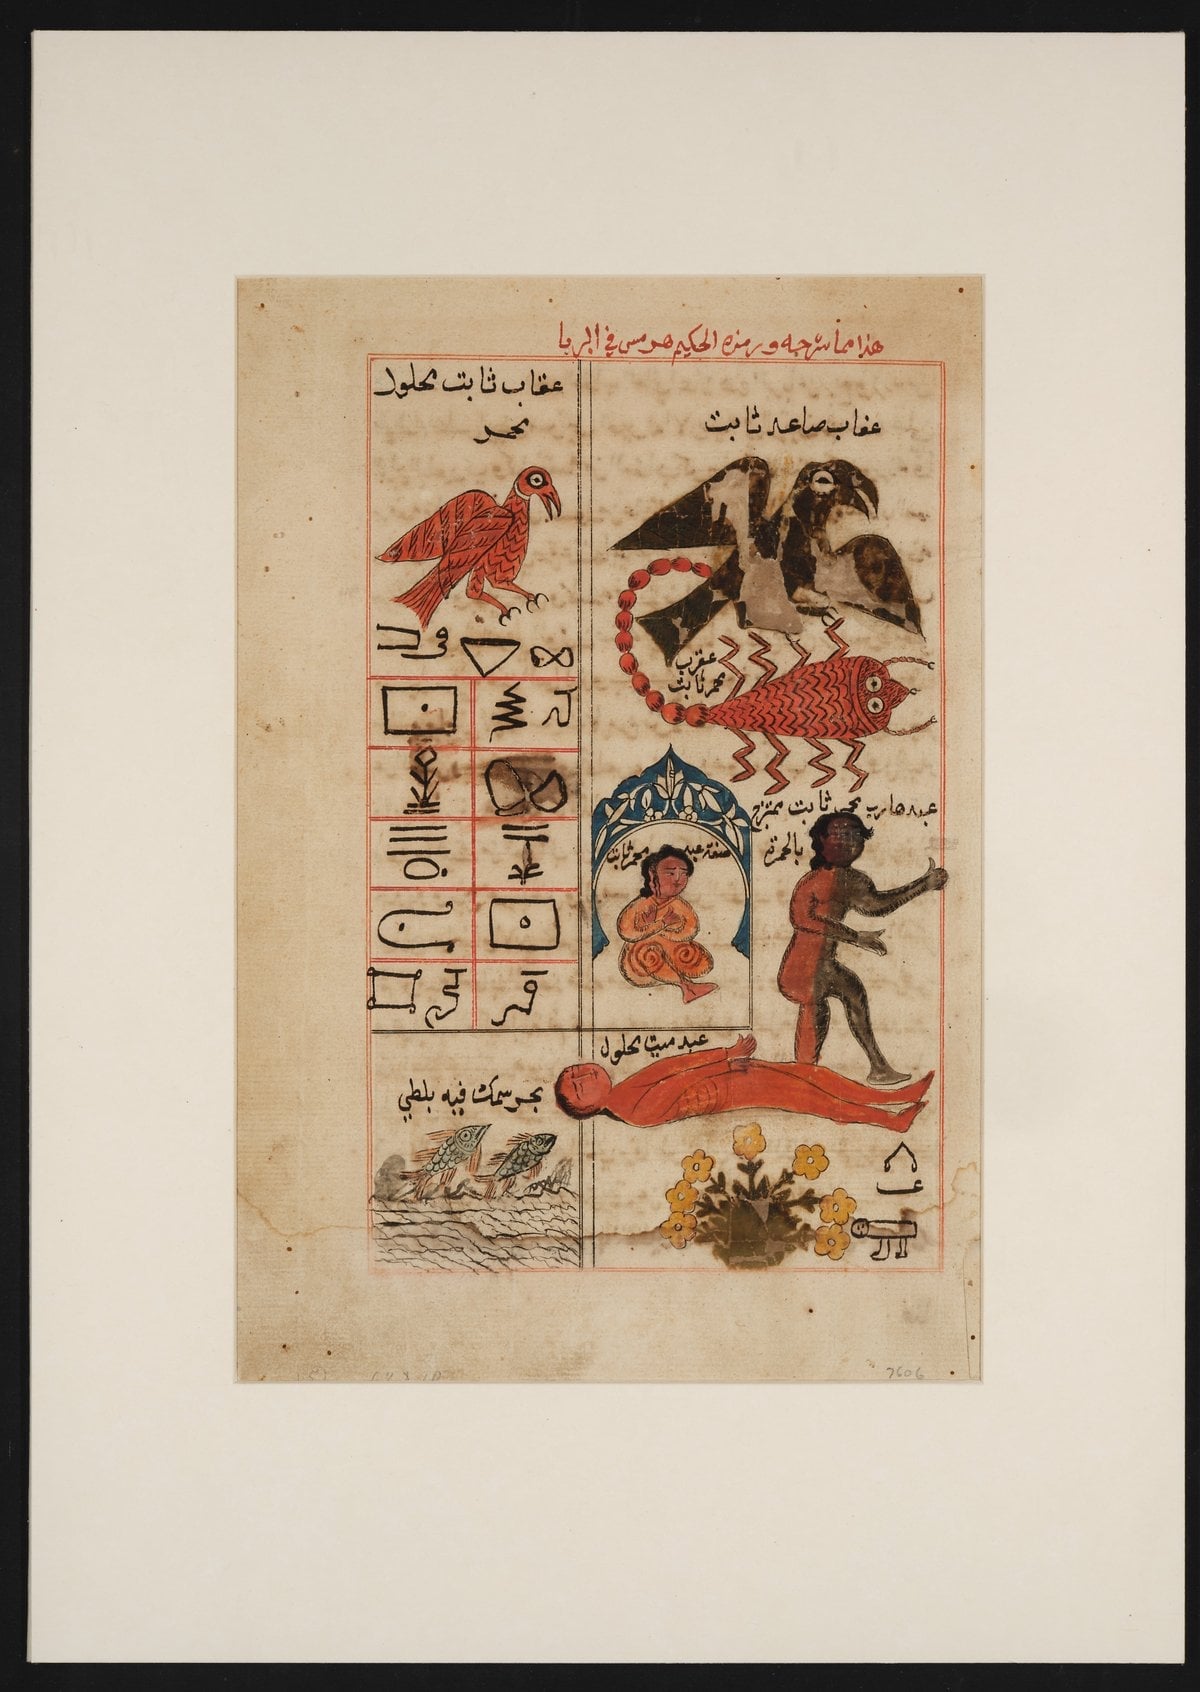 هذا مما شرحه ورمزه الحكيم هرمس في البربا
عقاب صاعد ثابت
عقاب ثابت محلول
محمر
عقرب
محمر ثابت
عبد هارب محي ثابت ممتزج
بالحمرة
صفة عبد محمر ثابت
عبد ميت محلول
بحر سمك فيه بلطي
7606